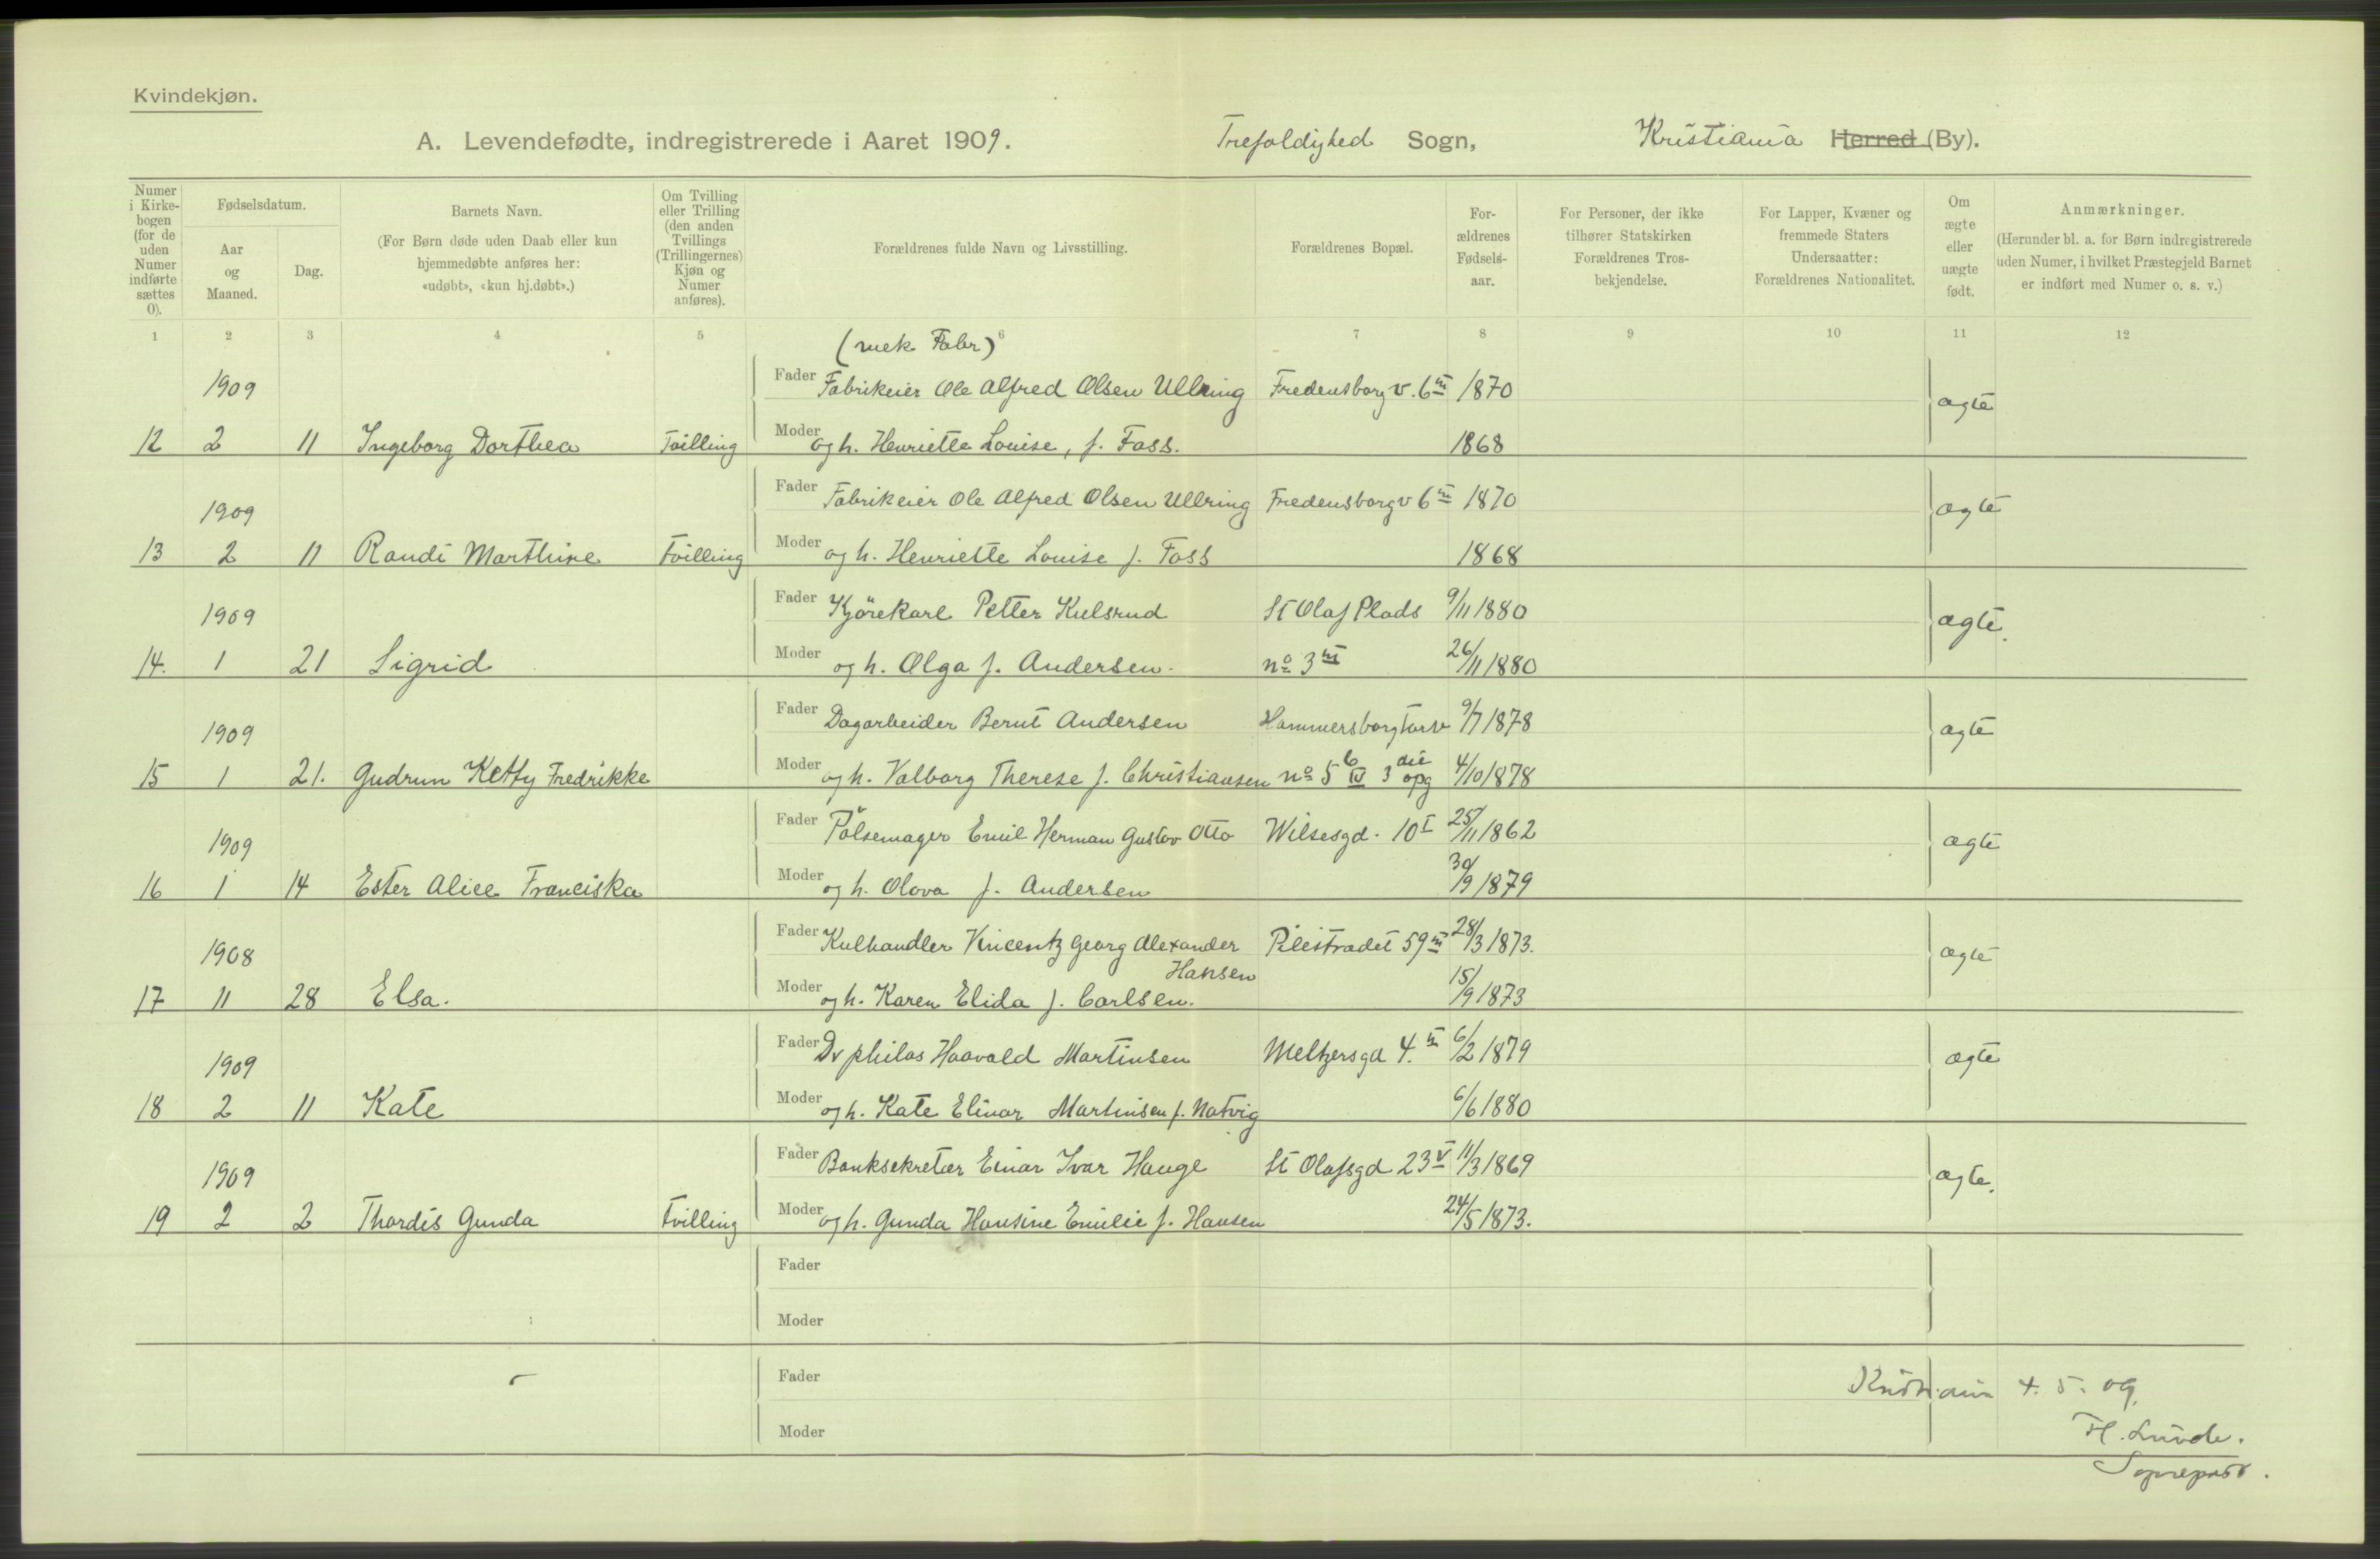 Kvindekjøn.
A. Levendefødte, indregistrerede i Aaret 1909. Trefoldighed Sogn, Kristiania Herred (By).
Numer i Kirkebogen (for de uden Numer indførte sættes 0).
Fødselsdatum.
Aar og Maaned.
Dag.
Barnets Navn.
(For Børn døde uden Daab eller kun hjemmedøbte anføres her: «udøbt», «kun hj.døbt».)
Om Tvilling eller Trilling (den anden Tvillings (Trillingernes) Kjøn og Numer anføres).
Forældrenes fulde Navn og Livsstilling.
Forældrenes Bopæl.
Forældrenes Fødselsaar.
For Personer, der ikke tilhører Statskirken Forældrenes Trosbekjendelse.
For Lapper, Kvæner og fremmede Staters Undersaatter: Forældrenes Nationalitet.
Om ægte eller uægte født.
Anmærkninger.
(Herunder bl. a. for Børn indregistrerede uden Numer, i hvilket Præstegjeld Barnet er indført med Numer o. s. v.)
1 2 3 4 5 6 7 8 9 10 11 12
(mek. Fabr)
1909 Fader Fabrikeier Ole Alfred Olsen Ullring Fredensborgv. 6 III 1870 ægte
12 2 11 Ingeborg Dorthea Tvilling Moder og h. Henriette Louise, f. Foss. 1868
1909 Fader Fabrikeier Ole Alfred Olsen Ullring Fredensborgv 6 III 1870 ægte
13 2 11 Randi Marthine Tvilling Moder og h. Henriette Louise f. Foss 1868
1909 Fader Kjörekarl Petter Kulsrud St Olaf Plads 9/11 1880 ægte
14. 1 21 Sigrid Moder og h. Olga f. Andersen. no 3 III 26/11 1880
1909 Fader Dagarbeider Bernt Andersen Hammersborgtorv 9/7 1878 ægte
15 1 21. Gudrun Ketty Fredrikke Moder og h. Valborg Therese f. Christiansen no 5 b IV 3 die opg 4/10 1878
1909 Fader Pölsemager Emil Herman Gustav Otto Wilsesgd. 10 I 25/11 1862 ægte
16 1 14 Ester Alice Franciska Moder og h. Olova f. Andersen 30/9 1879
1908 Fader Kulhandler Vincentz Georg Alexander Pilestrædet 59 III 28/3 1873. ægte
Hansen
17 11 28 Elsa. Moder og h. Karen Elida f. Carlsen. 15/9 1873
1909 Fader Dr philos Haavald Martinsen Meltzersgd 4. III 6/2 1879 ægte
18 2 11 Kate Moder og h. Kate Elinor Martinsen f. Natvig 6/6 1880
1909 Fader Banksekretær Einar Ivar Hauge St Olafsgd 23 V 11/3 1869 ægte.
19 2 2 Thordis Gunda Tvilling Moder og h. Gunda Hansine Emilie f. Hansen 24/5 1873.
Fader
Moder
Fader
Kristiania 4. 5. 09.
Moder
H. Lunde.
Sognepræst.